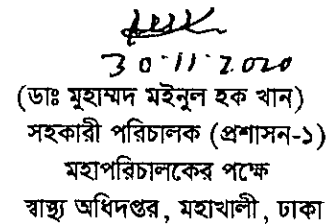 30.11.2020
(ডাঃ মুহাম্মদ মইনুল হক খান)
সহকারী পরিচালক (প্রশাসন-১)
মহাপরিচালকের পক্ষে
স্বাস্থ্য অধিদপ্তর, মহাখালী, ঢাকা